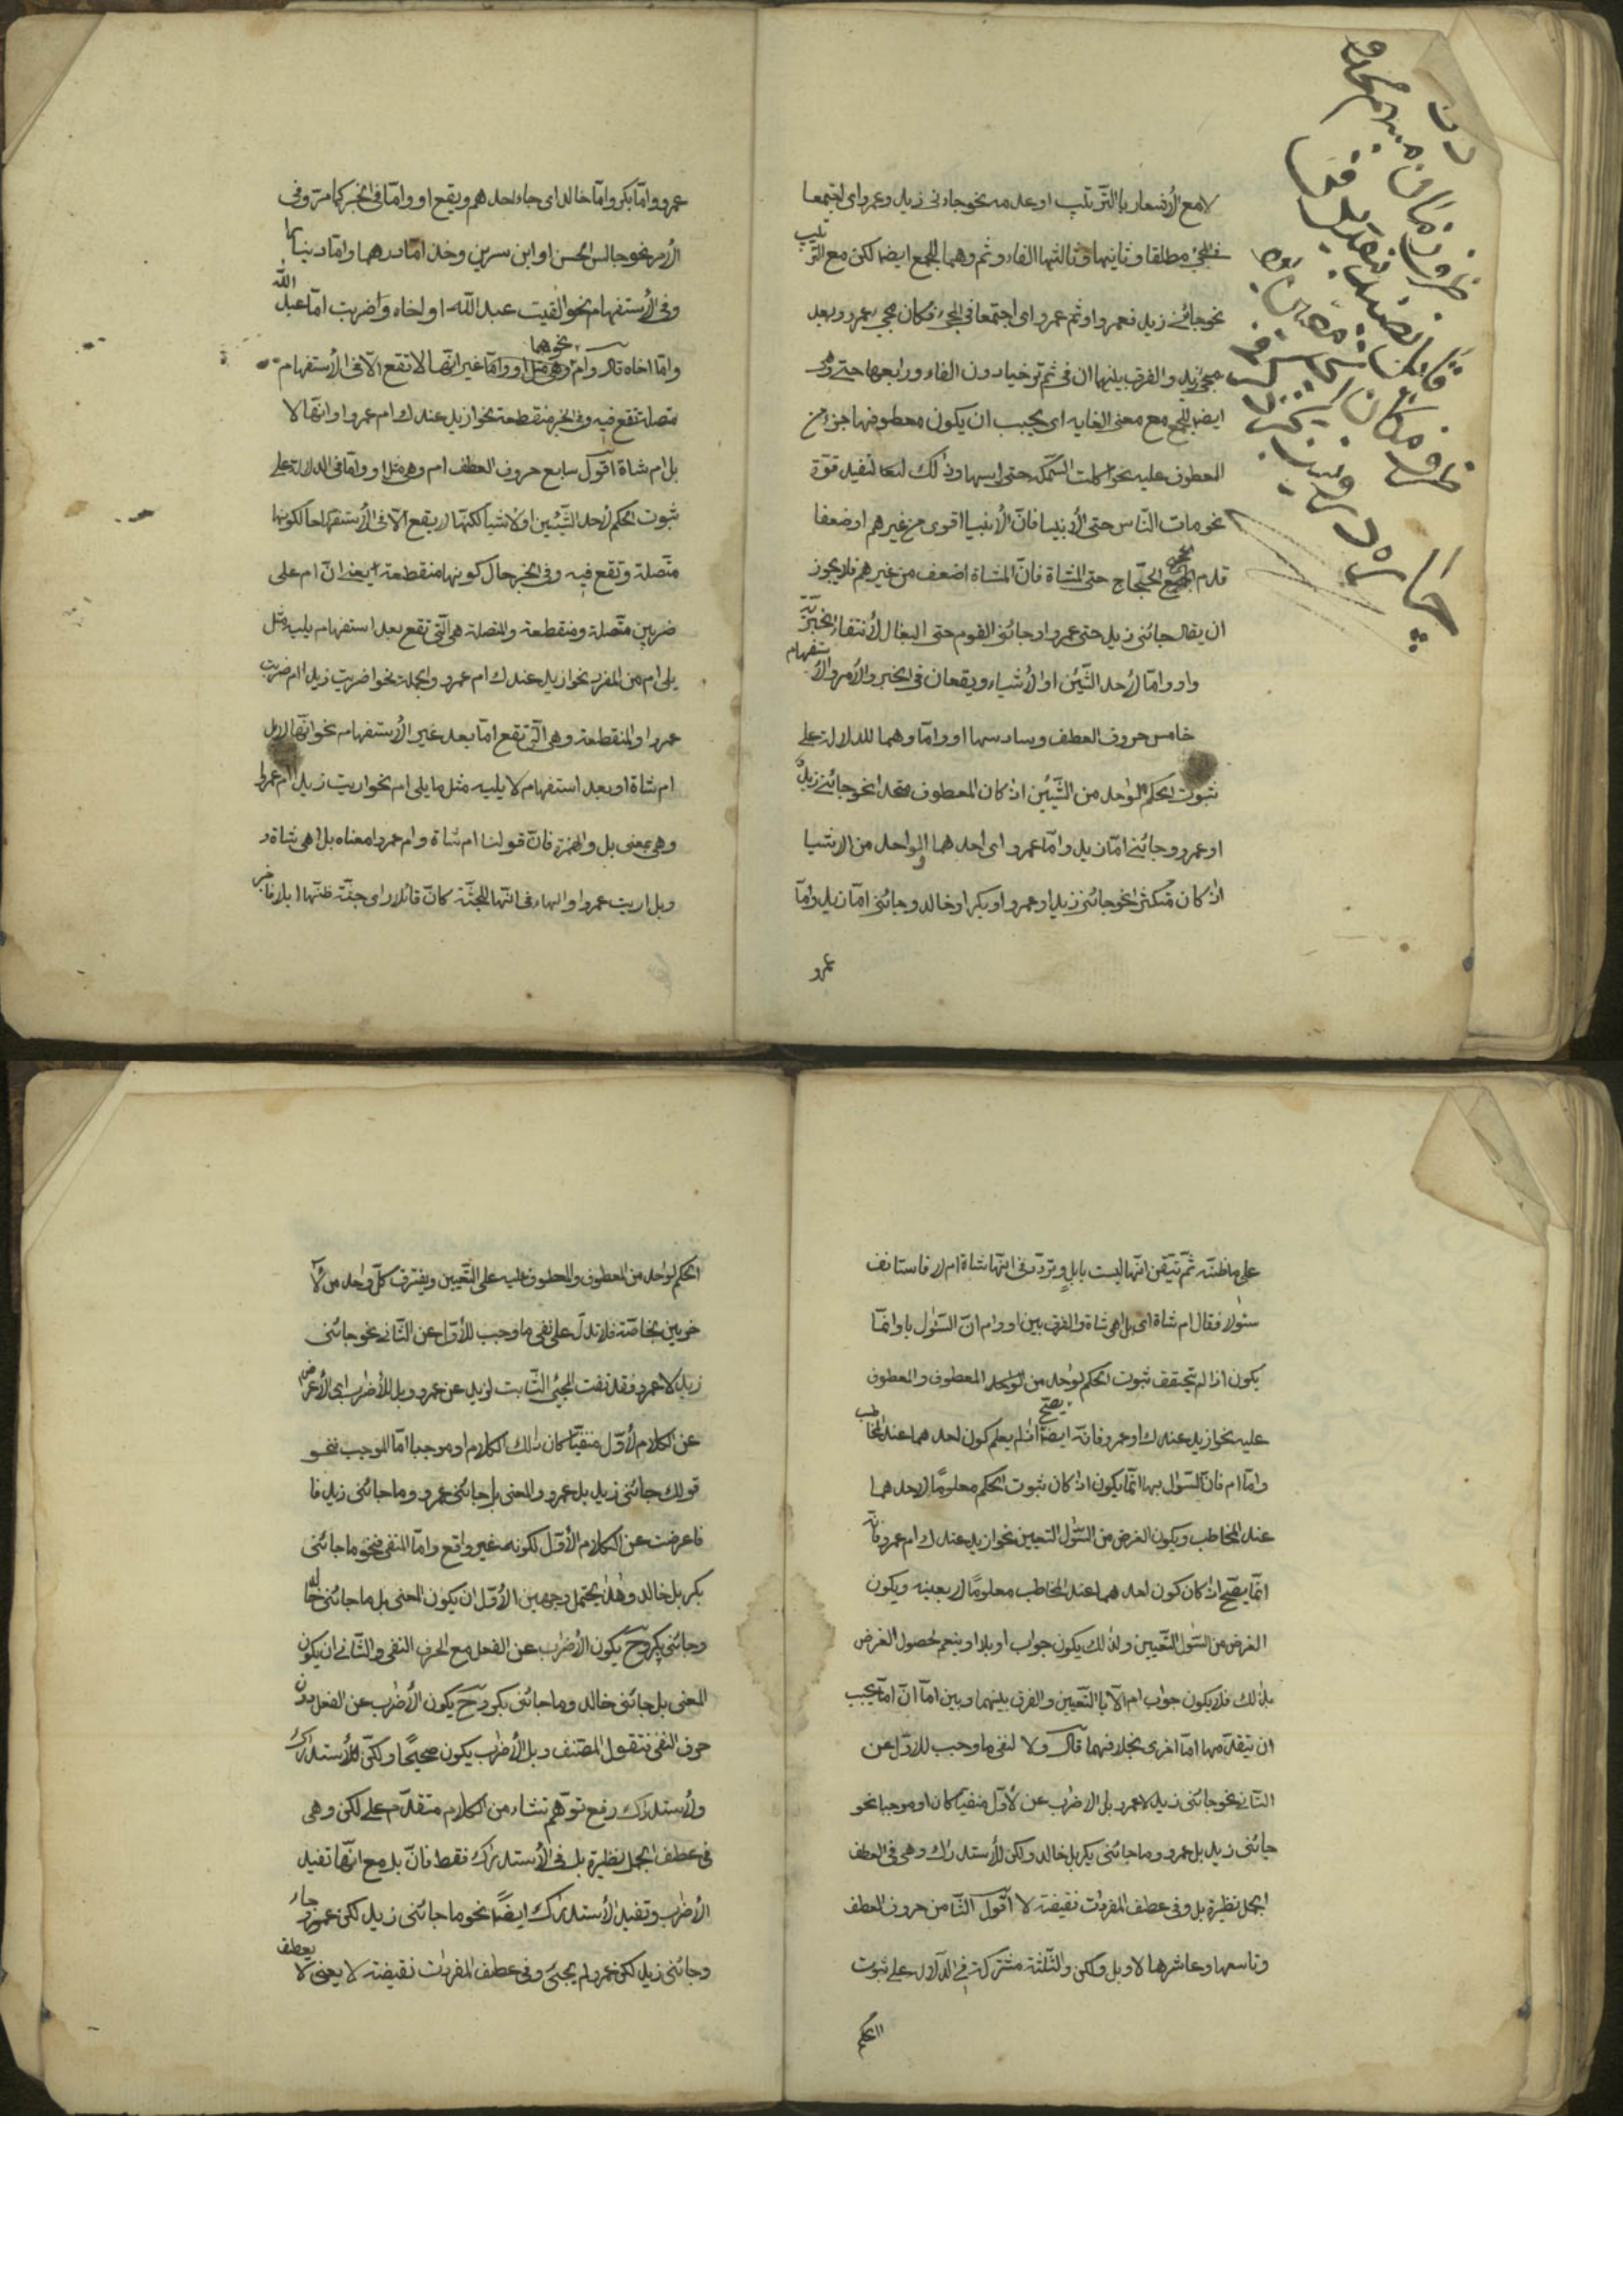 لا مع الأشعار بالترتيب او عدمه نحو جاءنى زيد وعمرو اى اجتمعا
فى المجئ مطلقا وثانيها وثالثها الفاء وثم وهما للجمع ايضا لكن مع الترتيب
نحو جائنى زيد فعمرو او ثم عمرو اى اجتمعا فى المجئ فكان مجئ عمرو وبعد
مجئ زيد والفرق بينهما ان فى ثم تراخيا دون الفاء ورابعها حتى وهى
ايضا للجمع مع معنى الغايه اى يجب ان يكون معطوفها جزء من
المعطوف عليه نحو اكلت السمكة حتى راسها وذلك لتفيد قوّة
نحو مات النّاس حتى الأنبيا فانّ الأنبيا اقوى من غيرهم او ضعفا
قدم الحجّاج حتى المشاة فانّ المشاة اضعف من غيرهم فلا يجوز
ان يقال جائنى زيد حتى عمرو او جائنى القوم حتى البغال لأنتفاء الجزئيّة
واو وامّا لأحد الشّيئين او الأشياء ويقعان فى الخبر والأمر والأستفهام
خامس حروف العطف وسادسها او وامّا وهما للدلالة على
ثبوت الحكم الواحد من الشّيئين اذا كان المعطوف متحدا نحو جائنى زيد
او عمرو وجائنى امّا زيد وامّا عمرو اى احدهما او الواحد من الاشيا
اذا كان متكثرا نحو جائنى زيد او عمرو او بكر او خالد وجائنى امّا زيد وامّا
عمرو
عمرو وامّا بكر وامّا خالد اى جاء احدهم ويقع او وامّا فى الخبر كما مرّ وفى
الأمر نحو جالس الحسن او ابن سرين وخذ امّا درهما وامّا دينارا
وفى الأستفهام نحو القيت عبد اللّه او اخاه واضربت امّا عبد الله
وامّا اخاه قال وام وهى مثل او وامّا غير انّها لا تقع الّا فى الأستفهام
متصلة تقع فيه وفى الخبر منقطعة نحو ازيد عندك ام عمرو او انّها لا
بل ام شاة اقول سابع حروف العطف ام وهى مثل او وامّا فى الدلالة على
ثبوت الحكم لأحد الشّيئين او الأشيا لكنّها لا يقع الّا فى الأستفهام حال كونها
متّصلة وتقع فيه وفى الخبر حال كونها منقطعة يعنى انّ ام على
ضربين متّصلة ومنقطعة والمتصلة هى الّتى تقع بعد استفهام يليه مثل
يلى ام من المفرد نحو ازيد عندك ام عمرو والجملة نحو اضربت زيدا ام ضربت
عمروا والمنقطعة وهى الّتى تقع امّا بعد غير الأستفهام نحو انّها لابل
ام شاة او بعد استفهام لا يليه مثل ما يلى ام نحو ارايت زيدا ام عمروا
وهى بمعنى بل والهمزة فانّ قولنا ام شاة وام عمروا معناه بل اهى شاة
وبل اريت عمروا والهاء فى انّها للجثّة كانّ قائلا راى جثّة ظنّها ابلا فاخبر
على ما ظنّه ثمّ تيقن انّها ليست بابل وتردّد فى انّها شاة ام لا فاستانف
سئولا فقال ام شاة اى بل اهى شاة والفرق بين او وام انّ السّئول باو انّما
يكون اذا لم يتحقق ثبوت الحكم لواحد من المعطوف والمعطوف
عليه نحو ازيد عندك او عمرو فانّه يصحّ اذا لم يعلم كون احدهما عند المخاطب
وامّا ام فانّ السّوال بها انّما يكون اذا كان ثبوت الحكم معلومًا لاحدهما
عند المخاطب ويكون الغرض من السّئول التعيين نحو ازيد عندك ام عمرو فانّه
انّما يصّح اذا كان كون احدهما عند المخاطب معلومًا لا بعينه ويكون
الغرض من السّئول التّعيين ولذلك يكون جواب او بلا او بنعم لحصول الغرض
بذلك فلا يكون جواب ام الّا بالتّعيين والفرق بينهما وبين امّا انّ امّا يجب
ان يتقدّمها امّا اخرى بخلافهما قال ولا لنفى ما وجب للاوّل عن
الثّانى نحو جائنى زيد لا عمرو بل للاضراب عن الأوّل منفيّا كان او موجبا نحو
جائنى زيد بل عمرو وما جائنى بكر بل خالد ولكن للأستدراك وهى فى العطف
الجمل نظيرة بل وفى عطف المفردات نقيضة لا اقول الثّامن حروف العطف
وتاسعها وعاشرها لا وبل ولكن والثّلثة مشتركة فى الدّلالة على ثبوت
الحكم
الحكم لواحد من المعطوف والمعطوف عليه على التّعيين ويفترق كلّ واحد من الأ
خرين بخاصّة فلا تدلّ على نفى ما وجب للأوّل عن الثّانى نحو جائنى
زيد لا عمرو فقد نفت المجئ الثّابت لزيد عن عمرو وبل للأضراب اى الأعراض
عن الكلام الأوّل منفيّا كان ذلك الكلام او موجبا امّا الموجب نحو
قولك جائنى زيد بل عمرو والمعنى بل جائنى عمرو وما جائنى زيد فا
فاعرضت عن الكلام الأوّل لكونه غير واقع وامّا المنفى فنحو ما جائنى
بكر بل خالد وهذا يحتمل وجهين الأوّل ان يكون المعنى بل ما جائنى خالد
وجائنى بكر وح يكون الأضراب عن الفعل مع الحرف النفى والثّانى ان يكون
المعنى بل جائنى خالد وما جائنى بكر وح يكون الأضراب عن الفعل دون
حرف النفى فتقول المصّنف وبل الأضراب يكون صحيحًا ولكنّ للأستدراك
والأستدراك رفع توهّم تنشاء من الكلام متقدّم على لكن وهى
فى عطف الجمل نظيرة بل فى الأستدراك فقط فانّ بل مع انّها تفيد
الأضراب وتفيد الأستدراك ايضًا نحو ما جائنى زيد لكن عمرو جاء
وجائنى زيد لكن عمرو لم يجئ وفى عطف المفردات نقيضة لا يعنى لا يعطف